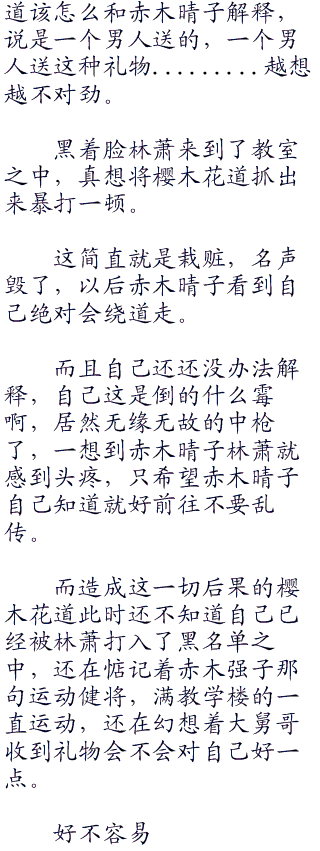 道该怎么和赤木晴子解释，
说是一个男人送的，一个男
人送这种礼物.........越想
越不对劲。
黑着脸林萧来到了教室
之中，真想将樱木花道抓出
来暴打一顿。
这简直就是栽赃，名声
毁了，以后赤木晴子看到自
己绝对会绕道走。
而且自己还还没办法解
释，自己这是倒的什么霉
啊，居然无缘无故的中枪
了，一想到赤木晴子林萧就
感到头疼，只希望赤木晴子
自己知道就好前往不要乱
传。
而造成这一切后果的樱
木花道此时还不知道自己已
经被林萧打入了黑名单之
中，还在惦记着赤木强子那
句运动健将，满教学楼的一
直运动，还在幻想着大舅哥
收到礼物会不会对自己好一
点。
好不容易